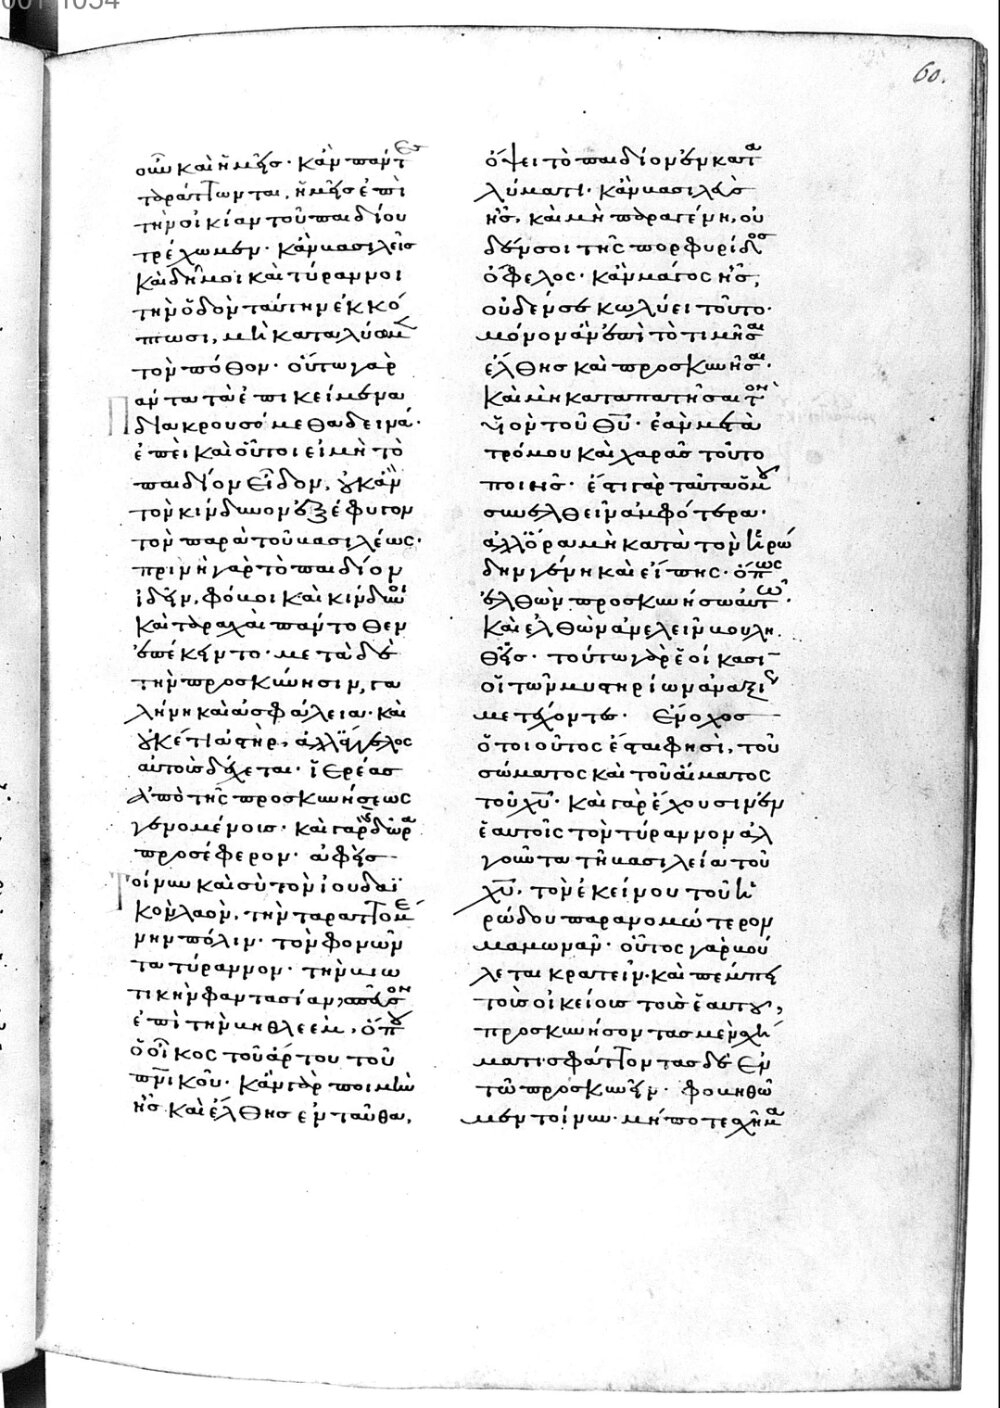 60.
οὖν καὶ ἡμεῖς· κἂν πάντες
ταράττωνται, ἡμεῖς ἐπὶ
τὴν οἰκίαν τοῦ παιδίου
τρέχωμεν· κἂν βασιλεῖς
κἂν δῆμοι κἂν τύραννοι
τὴν ὁδὸν ταύτην ἐκκό
πτωσι, μὴ καταλύσωμεν
τὸν πόθον· οὕτω γὰρ
ἅπαντα τὰ ἐπικείμενα
διακρουσόμεθα δεινά·
ἐπεὶ καὶ οὗτοι εἰ μὴ τὸ
παιδίον εἶδον, οὐκ ἂν
τὸν κίνδυνον ἐξέφυγον
τὸν παρὰ τοῦ βασιλέως·
πρὶν ἢ γὰρ τὸ παιδίον
ἰδεῖν, φόβοι καὶ κίνδυνοι
καὶ ταραχαὶ πάντοθεν
ἐπέκειντο· μετὰ δὲ
τὴν προσκύνησιν, γα
λήνη καὶ ἀσφάλεια· καὶ
οὐκέτι ἀστὴρ, ἀλλ' ἄγγελος
αὐτοὺς δέχεται· ἱερέας
ἀπὸ τῆς προσκυνήσεως
γενομένους· καὶ γὰρ δῶρα
προσέφερον· ἀφεὶς
τοίνυν καὶ σὺ τὸν ἰουδαϊ
κὸν λαὸν, τὴν ταραττομέ
νην πόλιν· τὸν φονῶν
τα τύραννον· τὴν βιω
τικὴν φαντασίαν, σπεῦσον
ἐπὶ τὴν βηθλεὲμ, ὅπου
ὁ οἶκος τοῦ ἄρτου τοῦ
πνικοῦ· κἂν γὰρ ποιμὴν
ᾖς καὶ ἔλθῃς ἐνταῦθα,
ὄψει τὸ παιδίον ἐν κατα
λύματι· κἂν βασιλεὺς
ᾖς, καὶ μὴ παραγένῃ, οὐ
δέν σοι τῆς πορφυρίδος
ὄφελος· κἂν μάγος ᾖς,
οὐδέν σε κωλύει τοῦτο·
μόνον ἂν ἐπὶ τὸ τιμῆσαι
ἔλθῃς καὶ προσκυνῆσαι·
καὶ μὴ καταπατῆσαι τὸν
υἱὸν τοῦ θυ· ἐὰν μετὰ
τρόμου καὶ χαρᾶς τοῦτο
ποιῇς· ἔστι γὰρ ταῦτα ὁμοῦ
συνελθεῖν ἀμφότερα·
ἀλλ' ὅρα μὴ κατὰ τὸν ἡρώ
δην γένῃ καὶ εἴπῃς· ὅπως
ἐλθὼν προσκυνήσω αὐτῷ·
καὶ ἐλθὼν ἀνελεῖν βουλη
θῇς· τούτῳ γὰρ ἐοίκασι
οἱ τῶν μυστηρίων ἀναξίως
μετέχοντες· Ἔνοχος
ὁ τοιοῦτος ἔσται φησὶ, τοῦ
σώματος καὶ τοῦ αἵματος
τοῦ χυ· καὶ γὰρ ἔχουσιν ἐν
ἑαυτοῖς τὸν τύραννον ἀλ
γοῦντα τῇ βασιλείᾳ τοῦ
χυ, τὸν ἐκείνου τοῦ ἡ
ρώδου παρανομώτερον
μαμωνᾶν· οὗτος γὰρ βού
λεται κρατεῖν· καὶ πέμπει
τοὺς οἰκείους τοὺς ἑαυτοῦ,
προσκυνήσοντας μὲν σχή
ματι· σφάττοντας δὲ ἐν
τῷ προσκυνεῖν· φοβηθῶ
μεν τοίνυν· μήποτε σχῆμα